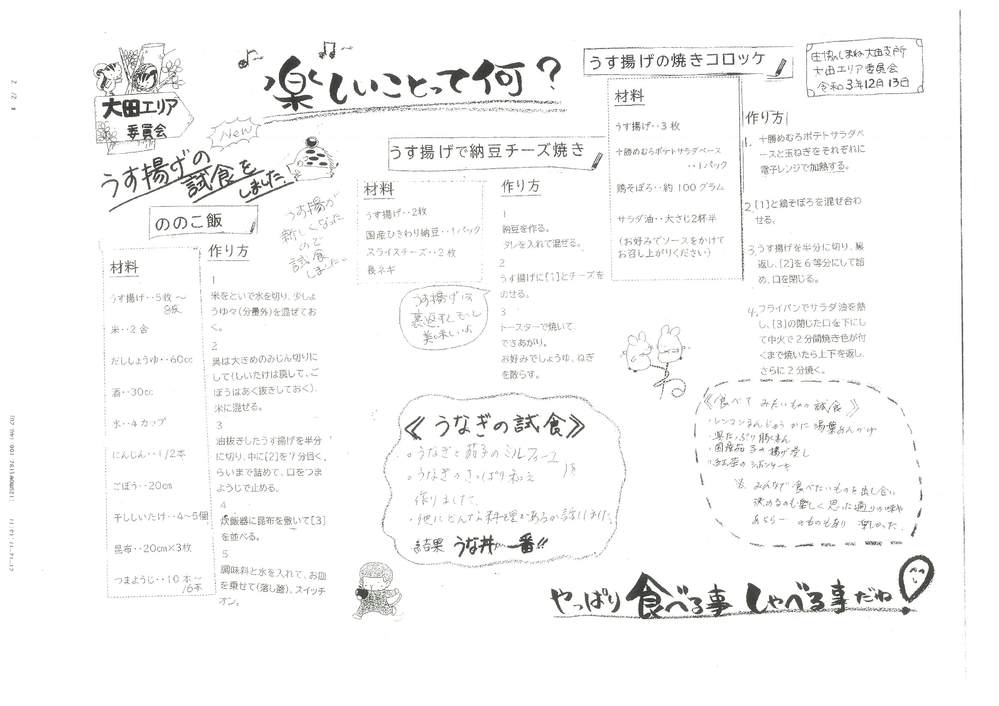 楽しいことって何？
生協しまね大田支所
大田エリア委員会
令和3年12月13日
大田エリア
委員会
New
うす揚げの
試食を
しました
うす揚が
新しくなった
ので
試食
しました
ののこ飯
材料
うす揚げ・・5枚～
8枚
米・・2合
だししょうゆ・・60cc
酒・・30cc
水・・4カップ
にんじん・・1/2本
ごぼう・・20cm
干ししいたけ・・4～5個
昆布・・20cm×3枚
つまようじ・・10本～
16本
作り方
1
米をといで水を切り、少ししょ
うゆ々(分量外)を混ぜてお
く。
2
具は大きめのみじん切りに
して(しいたけは戻して、ご
ぼうはあく抜きしておく)、
米に混ぜる。
3
油抜きしたうす揚げを半分
に切り、中に[2]を7分目く
らいまで詰めて、口をつま
ようじで止める。
4
炊飯器に昆布を敷いて[3]
を並べる。
5
調味料と水を入れて、お皿
を乗せて(落し蓋)、スイッチ
オン。
うす揚げで納豆チーズ焼き
材料
うす揚げ・・2枚
国産ひきわり納豆・・1パック
スライスチーズ・・2枚
長ネギ
作り方
1
納豆を作る。
タレを入れて混ぜる。
2
うす揚げに[1]とチーズを
のせる。
3
トースターで焼いて、
できあがり。
お好みでしょうゆ、ねぎ
を散らす。
うす揚げは
裏返すしても
美味しいよ
うす揚げの焼きコロッケ
材料
うす揚げ・・3枚
十勝めむろポテトサラダベース
・・1パック
鶏そぼろ・・約100グラム
サラダ油・・大さじ2杯半
(お好みでソースをかけて
お召し上がりください)
作り方
1. 十勝めむろポテトサラダベ
ースと玉ねぎをそれぞれに
電子レンジで加熱する。
2. [1]と鶏そぼろを混ぜ合わ
せる。
3. うす揚げを半分に切り、裏
返し、[2]を6等分にして詰
め、口を閉じる。
4. フライパンでサラダ油を熱
し、[3]の閉じた口を下にし
て中火で2分間焼き色が付
くまで焼いたら上下を返し、
さらに2分焼く。
《うなぎの試食》
・うなぎと茄子のミルフィーユ
・うなぎのさっぱり和え
作りました
・他にどんな料理があるか話しました
結果 うな丼が一番!!
《食べて みたいもの 試食》
・レンコンまんじゅう かに湯葉あんかけ
・果たっぷり豚まん
・国産茄子の揚げ煮し
・紅茶のシホンケーキ
みんなで食べたいものを出し合い
決めるのも楽しく 思った通りの味や
あらら… のものもあり 楽しかった
やっぱり 食べる事 しゃべる事 だね!